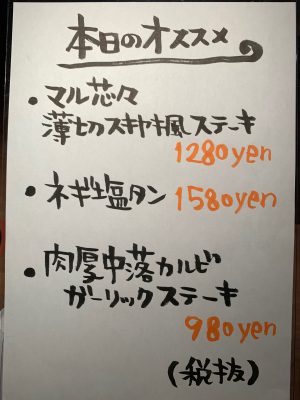 本日のオススメ
・マル芯々
薄切スキヤキ風ステーキ
1280yen
・ネギ塩タン 1580yen
・肉厚中落カルビ
ガーリックステーキ
980yen
(税抜)